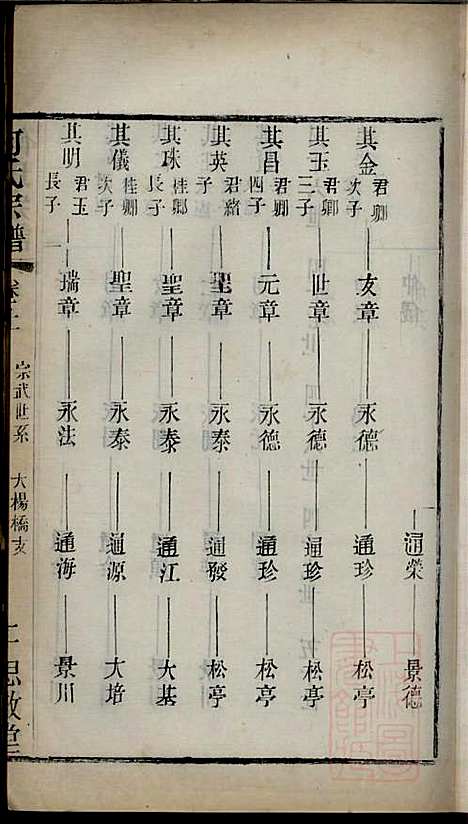 通榮 景德
其金 君卿次子 友章 永德 通珍 松亭
其玉 君卿三子 世章 永德 通珍 松亭
其昌 君卿四子 元章 永德 通珍 松亭
其英 君緒子 聖章 永泰 通發 松亭
其珠 桂卿長子 聖章 永泰 通江 大基
其儀 桂卿次子 聖章 永泰 通源 大培
其明 君玉長子 瑞章 永法 通海 景川
何氏宗譜 宗武世系 大楊橋支 思敬堂